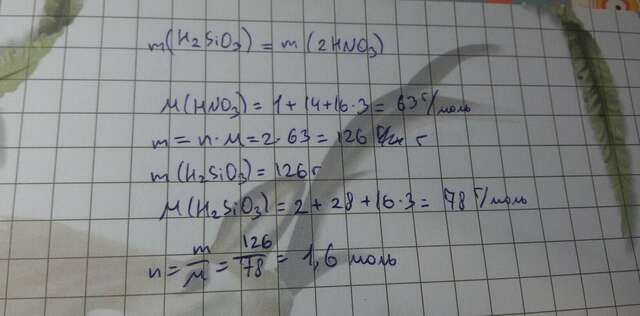 m(H₂SiO₃) = m(2HNO₃)
M(HNO₃) = 1+14+16·3 = 63 г/моль
m = n · M = 2 · 63 = 126 г
m(H₂SiO₃) = 126 г
M(H₂SiO₃) = 2+28+16·3 = 78 г/моль
n = m/M = 126/78 = 1,6 моль